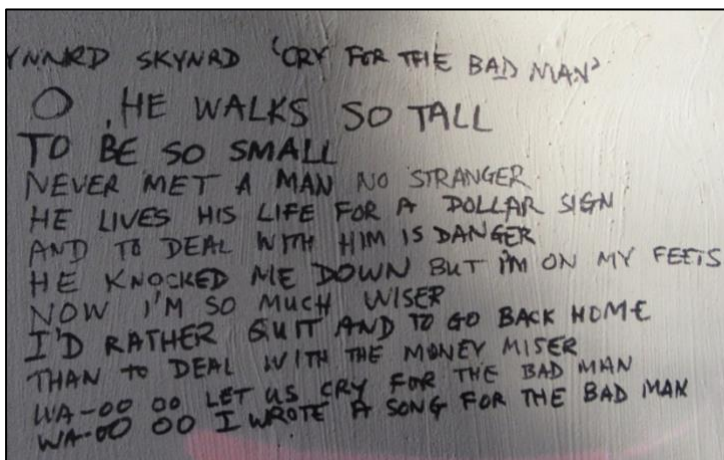 YNNRD SKYNRD 'CRY FOR THE BAD MAN'
O, HE WALKS SO TALL
TO BE SO SMALL
NEVER MET A MAN NO STRANGER
HE LIVES HIS LIFE FOR A DOLLAR SIGN
AND TO DEAL WITH HIM IS DANGER
HE KNOCKED ME DOWN BUT I'M ON MY FEETS
NOW I'M SO MUCH WISER
I'D RATHER QUIT AND TO GO BACK HOME
THAN TO DEAL WITH THE MONEY MISER
WA-OO OO LET US CRY FOR THE BAD MAN
WA-OO OO I WROTE A SONG FOR THE BAD MAN